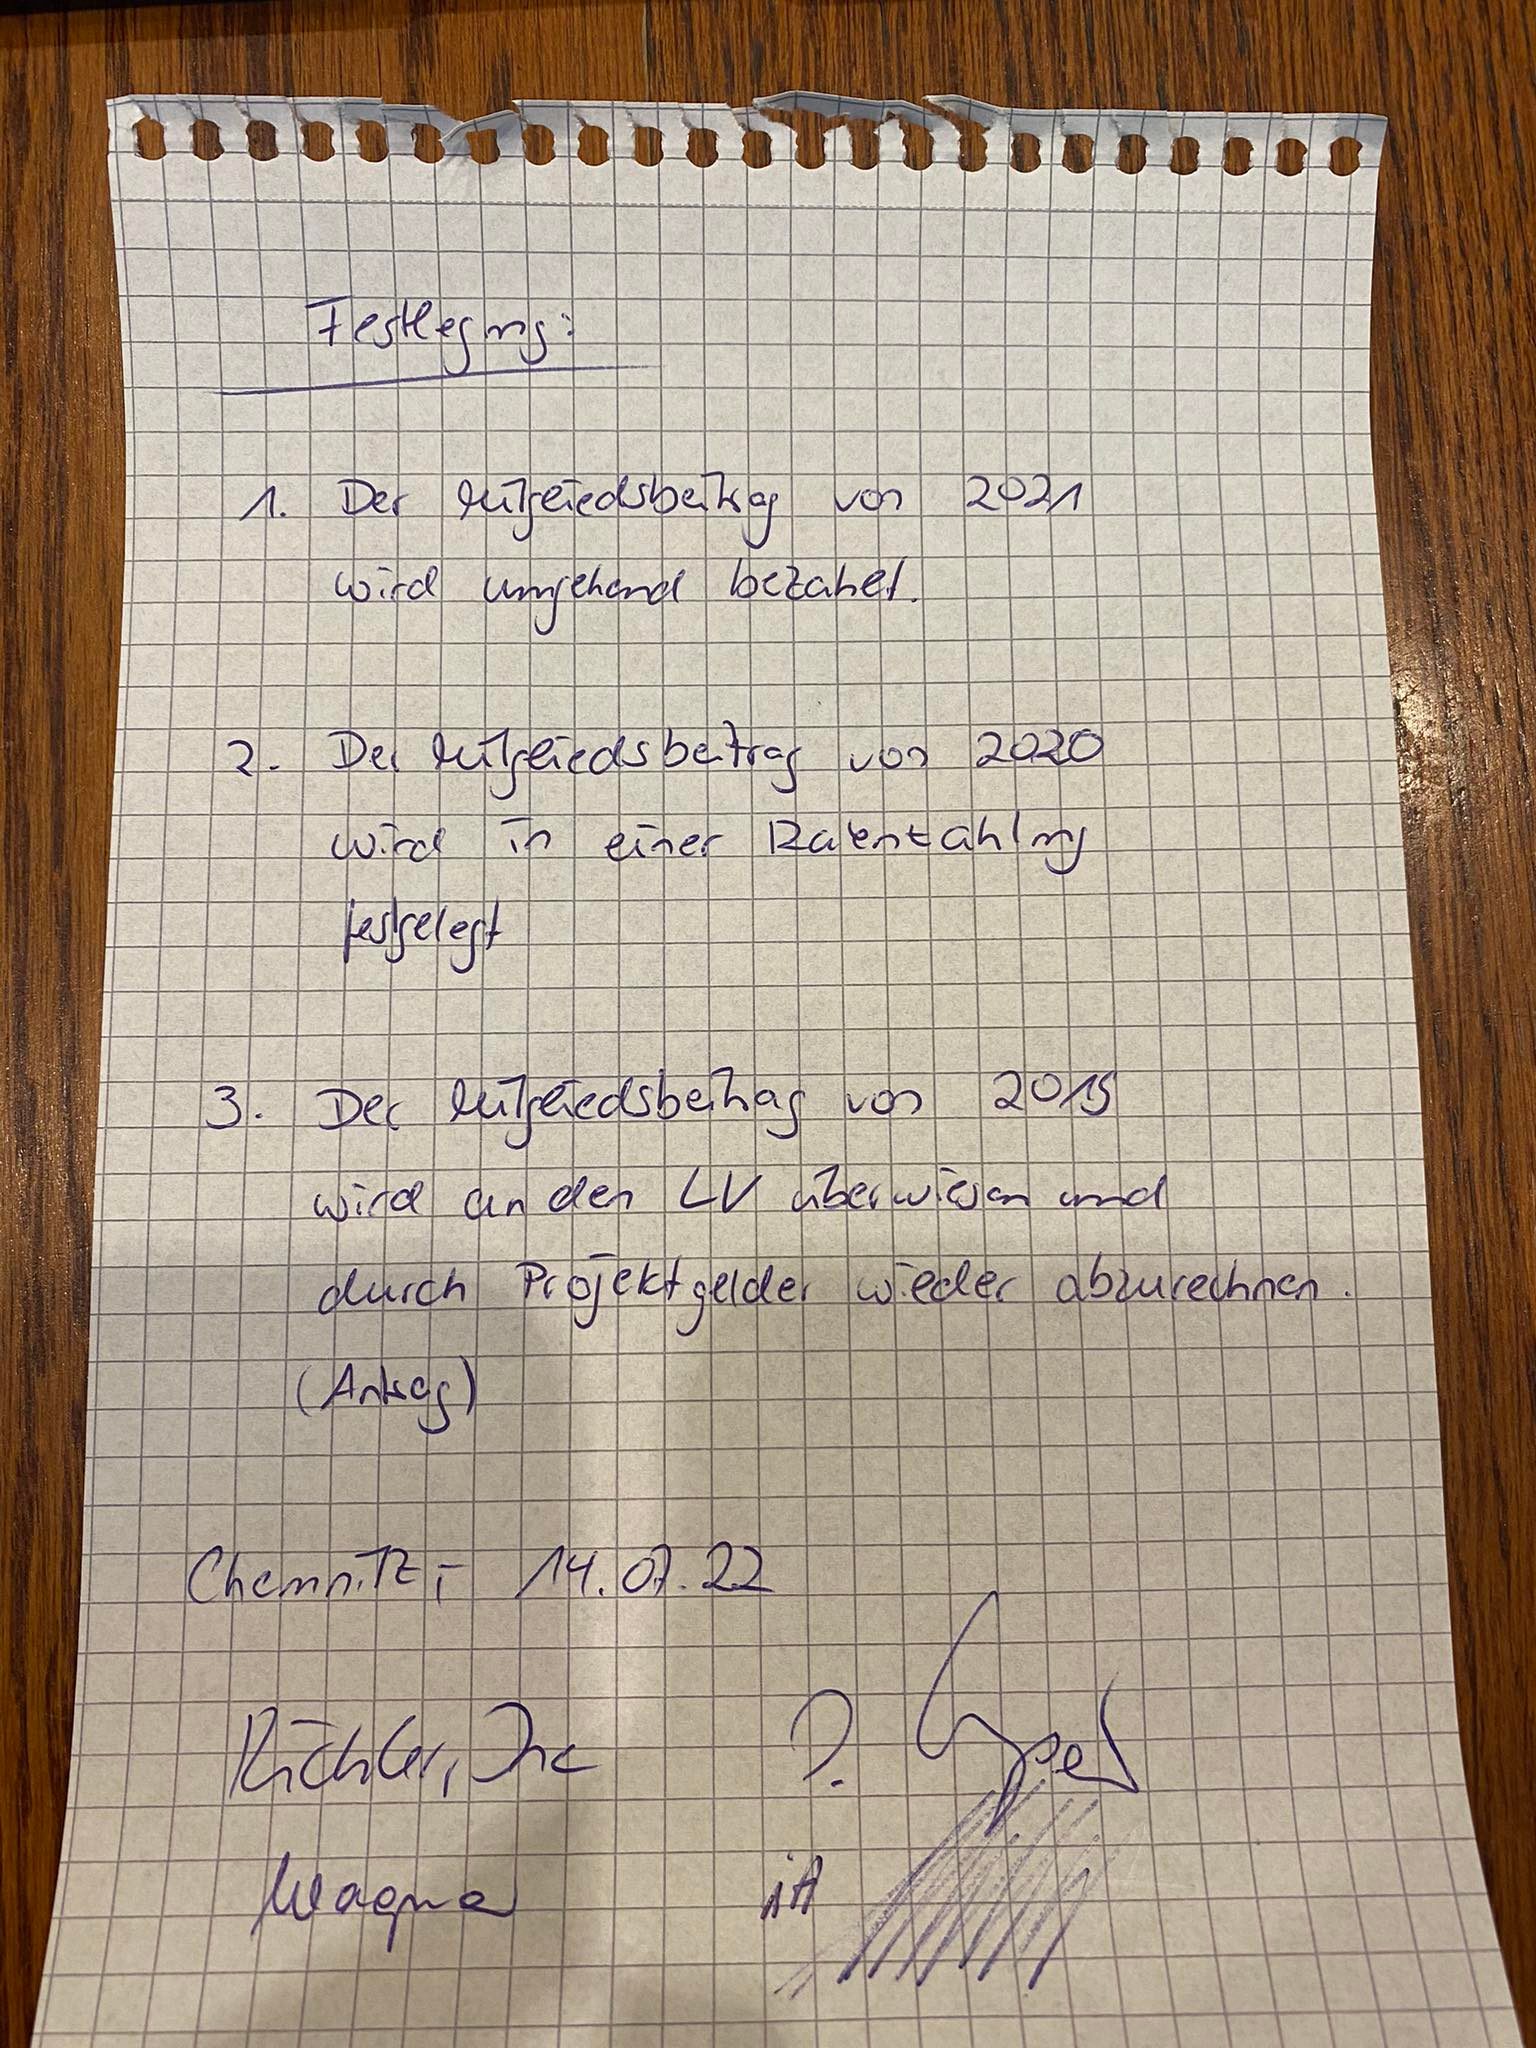 Festlegung:
1. Der Mitgliedsbeitrag von 2021
wird umgehend bezahlt.
2. Der Mitgliedsbeitrag von 2020
wird in einer Ratenzahlung
festgelegt
3. Der Mitgliedsbeitrag von 2019
wird an den LV überwiesen und
durch Projektgelder wieder abzurechnen.
(Antrag)
Chemnitz, 14.07.22
Richter,
Wagner iA